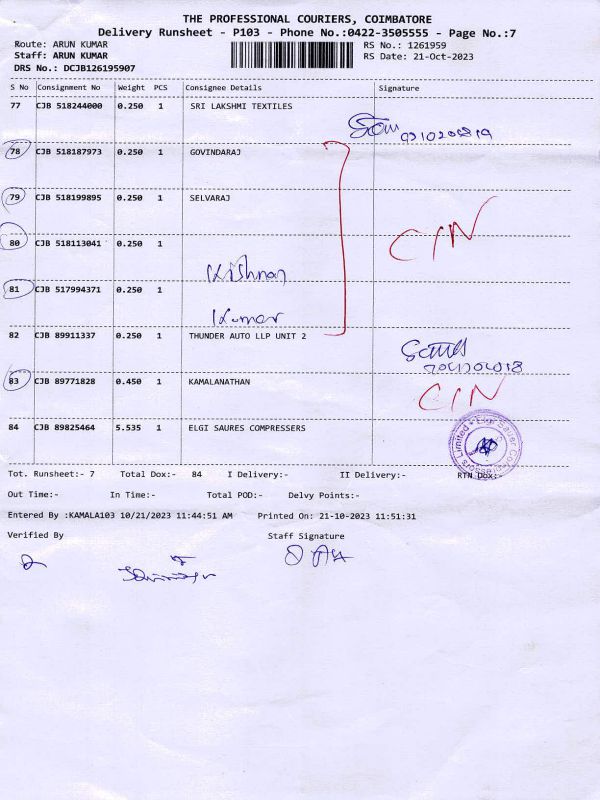 THE PROFESSIONAL COURIERS, COIMBATORE
Delivery Runsheet - P103 - Phone No.:0422-3505555 - Page No.:7
Route: ARUN KUMAR RS No.: 1261959
Staff: ARUN KUMAR RS Date: 21-Oct-2023
DRS No.: DCJB126195907
S No Consignment No Weight PCS Consignee Details Signature
77 CJB 518244000 0.250 1 SRI LAKSHMI TEXTILES
78 CJB 518187973 0.250 1 GOVINDARAJ
79 CJB 518199895 0.250 1 SELVARAJ
C/N
80 CJB 518113041 0.250 1
Krishnan
81 CJB 517994371 0.250 1
Kumar
82 CJB 89911337 0.250 1 THUNDER AUTO LLP UNIT 2
83 CJB 89771828 0.450 1 KAMALANATHAN C/N
84 CJB 89825464 5.535 1 ELGI SAURES COMPRESSERS
Tot. Runsheet:- 7 Total Dox:- 84 I Delivery:- II Delivery:- RTN Dox:-
Out Time:- In Time:- Total POD:- Delvy Points:-
Entered By :KAMALA103 10/21/2023 11:44:51 AM Printed On: 21-10-2023 11:51:31
Verified By Staff Signature